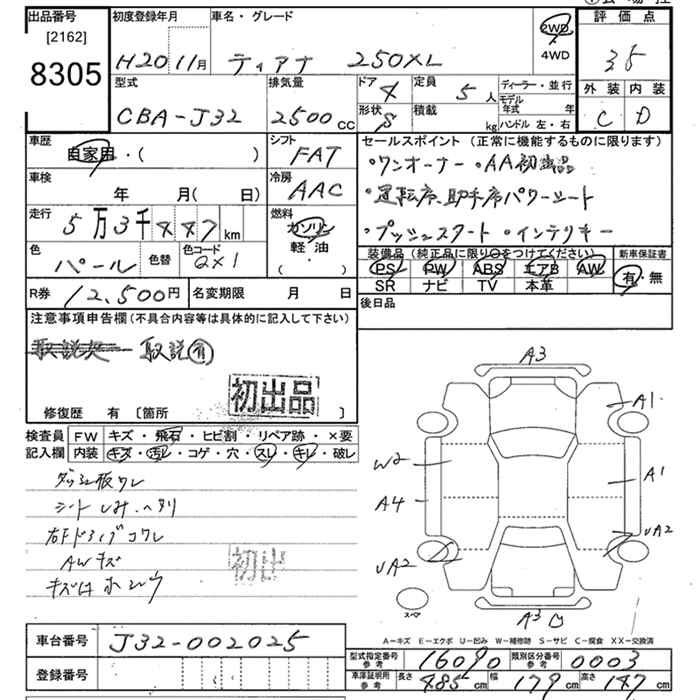 出品番号
[2162]
8305
初度登録年月
H20 11月
車名・グレード
ティアナ 250XL
2WD
4WD
評価点
3.5
外装 内装
C D
型式
CBA-J32
排気量
2500cc
ドア 4
形状 S
定員 5人
積載 kg
ディーラー・並行
モデル年式 年
ハンドル 左・右
車歴
自家用・( )
シフト
FAT
車検
年 月(日)
冷房
AAC
走行
5万3千447km
燃料
ガソリン
軽・油
・( )
色
パール
色替
色コード
QX1
セールスポイント (正常に機能するものに限ります)
・ワンオーナー ・AA初出品
・運転席、助手席パワーシート
・プッシュスタート ・インテリキー
装備品(純正品に限り○をつけてください)
PS PW ABS エアB AW
SR ナビ TV 本革
新車保証書
有・無
R券 12,500円
名変期限 月 日
後日品
注意事項申告欄(不具合内容等は具体的に記入して下さい)
取説欠 取説有
初出品
修復歴 有 〔箇所 〕
検査員
記入欄
FW キズ・飛石・ヒビ割・リペア跡・×要
内装 キズ・汚レ・コゲ・穴・スレ・キレ・破レ
ダッシュ板ワレ
シートしみ.ヘタリ
AWキズ
初出
A3
A1
W2
A4
A1
UA2
UA2
スペア
A3
A-キズ E-エクボ U-凹み W-補修跡 S-サビ C-腐食 XX-交換済
車台番号 J32-002025
登録番号
型式指定番号
参考
16090
類別区分番号
参考
0003
車庫証明用
参考
長さ 485cm 幅 179cm 高さ 147cm